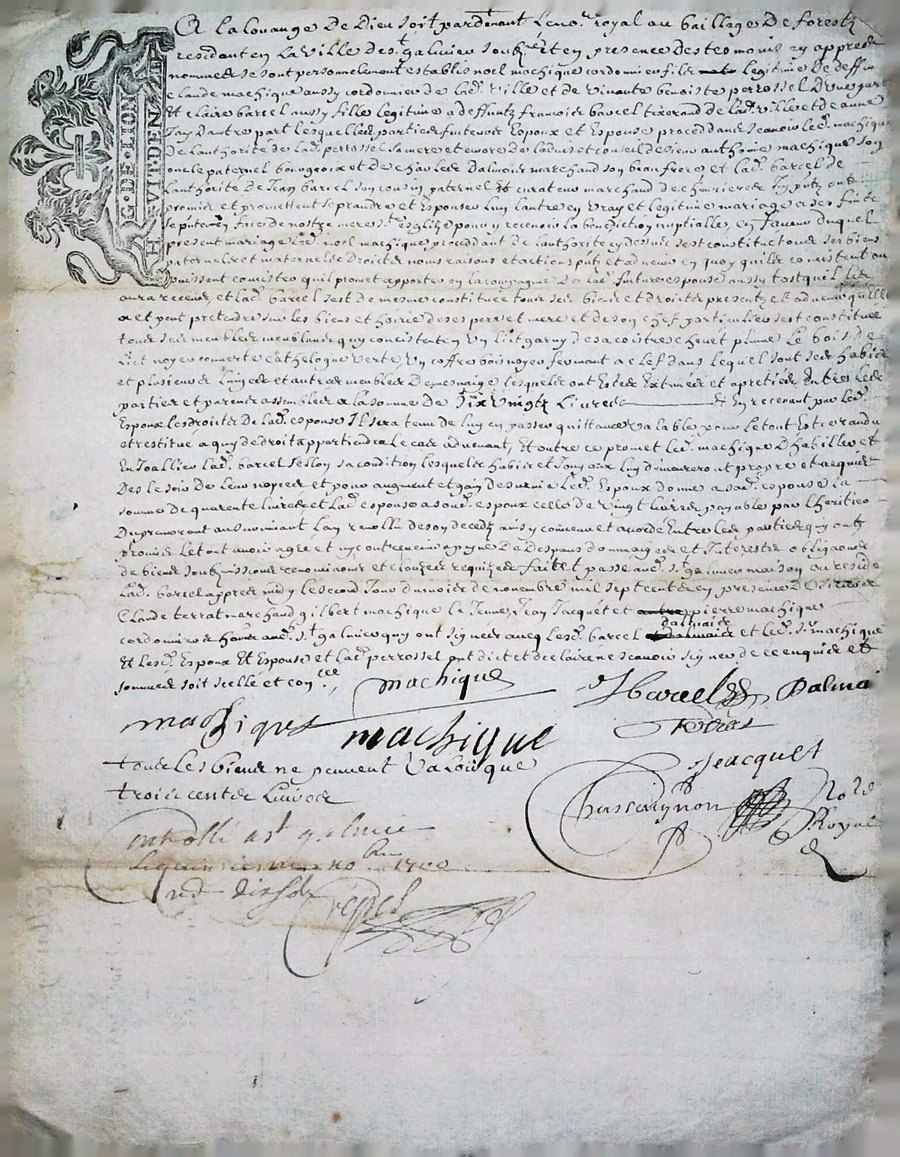 G. DE LION
HVIT DEN
A la louange de Dieu soit pardevant le no.re royal au bailliage de forestz
residant en la ville de s.t galmier soubz.né et en presence des tesmoins cy apprés
nommés se sont personnelement establis noel machique cordonnier filz legitime de deffunt
claude machique aussy cordonnier de lad. ville et de vivante benoiste perrossel d'une part
Et claire barcel aussy fille legitime a deffuntz francois barcel tixerand de lad. ville et de anne
Jay d'autre part lesquelles parties futeurs Espoux et Espouse proceddans scavoir led. machique
de l'authorité de lad. perrossel sa mere et encore de l'advis et conseil de sieur anthoine machique son
oncle paternel bourgeois et de charles dalmais marchand son beaufrere et lad. barcel de
l'authorité de Jean barcel son cousin paternel et curateur marchand de chevrieres
promis et promettent se prandre et Espouser l'un l'autre en vray et legitime mariage a ses fins
se puter en face de nostre mere s.te esglize pour y recevoir la benediction nuptialle, en faveur duquel
present mariage led. noel machique proceddant de l'authorité cy dessus sest constitué tous ses biens
paternels et maternels droictz noms raisons et actions ptz et advenir en quoy qu'ils concistent ou
puissent concister qu'il promet apporter en la compagnie de lad. future espouse aussy tost qu'il les
aura receues et lad. barcel sest de mesme constituee tous ses biens et droictz presentz et advenir qu'elle
a et peut pretendre sur les biens et hoirie de ses pere et mere et de son chef particulier sest constituee
tous ses meubles meublans quy concistent en un lict garny de sa coistre chevet plume le bois de
lict noyer couverte cathelogne verte, un coffre bois noyer fermant a clef dans lequel sont ses habits
et plusieurs linges et autres meubles de mesnage lesquels ont Estés Extimés et apretiés Entre lesd.
parties et parents assemblés a la somme de six vingtz livres et en recevant par led.
Espoux les droictz de lad. espouse Il sera tenu de luy en passer quittance valable pour le tout Estre rendu
et restitué a quy de droit appartiendra le cas advenant, Et outre ce promet led. machique d'habiller et
En Joallier lad. barcel sellon sa condition lesquels habits et Joyaux luy demeureront propre et acquis
des le soir de leur nopces et pour augment et gain de survie led. Espoux donne a sad. espouse la
somme de quarente livres et lad. espouse a sond. espoux celle de vingt livres payables par l'heritier
du premourant au survivant l'an revollu de son decedz ainsy convenu et acordé Entre lesd. parties quy ont
promis le tout avoir agreé et n'y contrevenir a peyne de despans dommages et Interestz obligaons
de biens soubzmissions renonciaons et clauzes requizes fait et passé aud. s.t galmier maison ou reside
lad. barcel apprès midy le second Jour du mois de novembre mil sept centz en presence de
Claude terrat marchand gilbert machique le Jeune, Jean Jacquet et pierre machique
dalmais
cordonniers aud. s.t galmier quy ont signés avec lesd. barcel et led. s.r machique
Et lesd. Espoux Et Espouse et lad. perrossel ont dict et declairé ne scavoir signer de ce enquis et
sommés soit scellé et con.lé
machique
JBarcel Dalmai
machique machique terrat
Jeacquet
tous les biens ne peuvent valoir que
trois centz livres
Chassaignon No.re Royal
Controllé a s.t galmier
le quinsiesme no.bre 1700